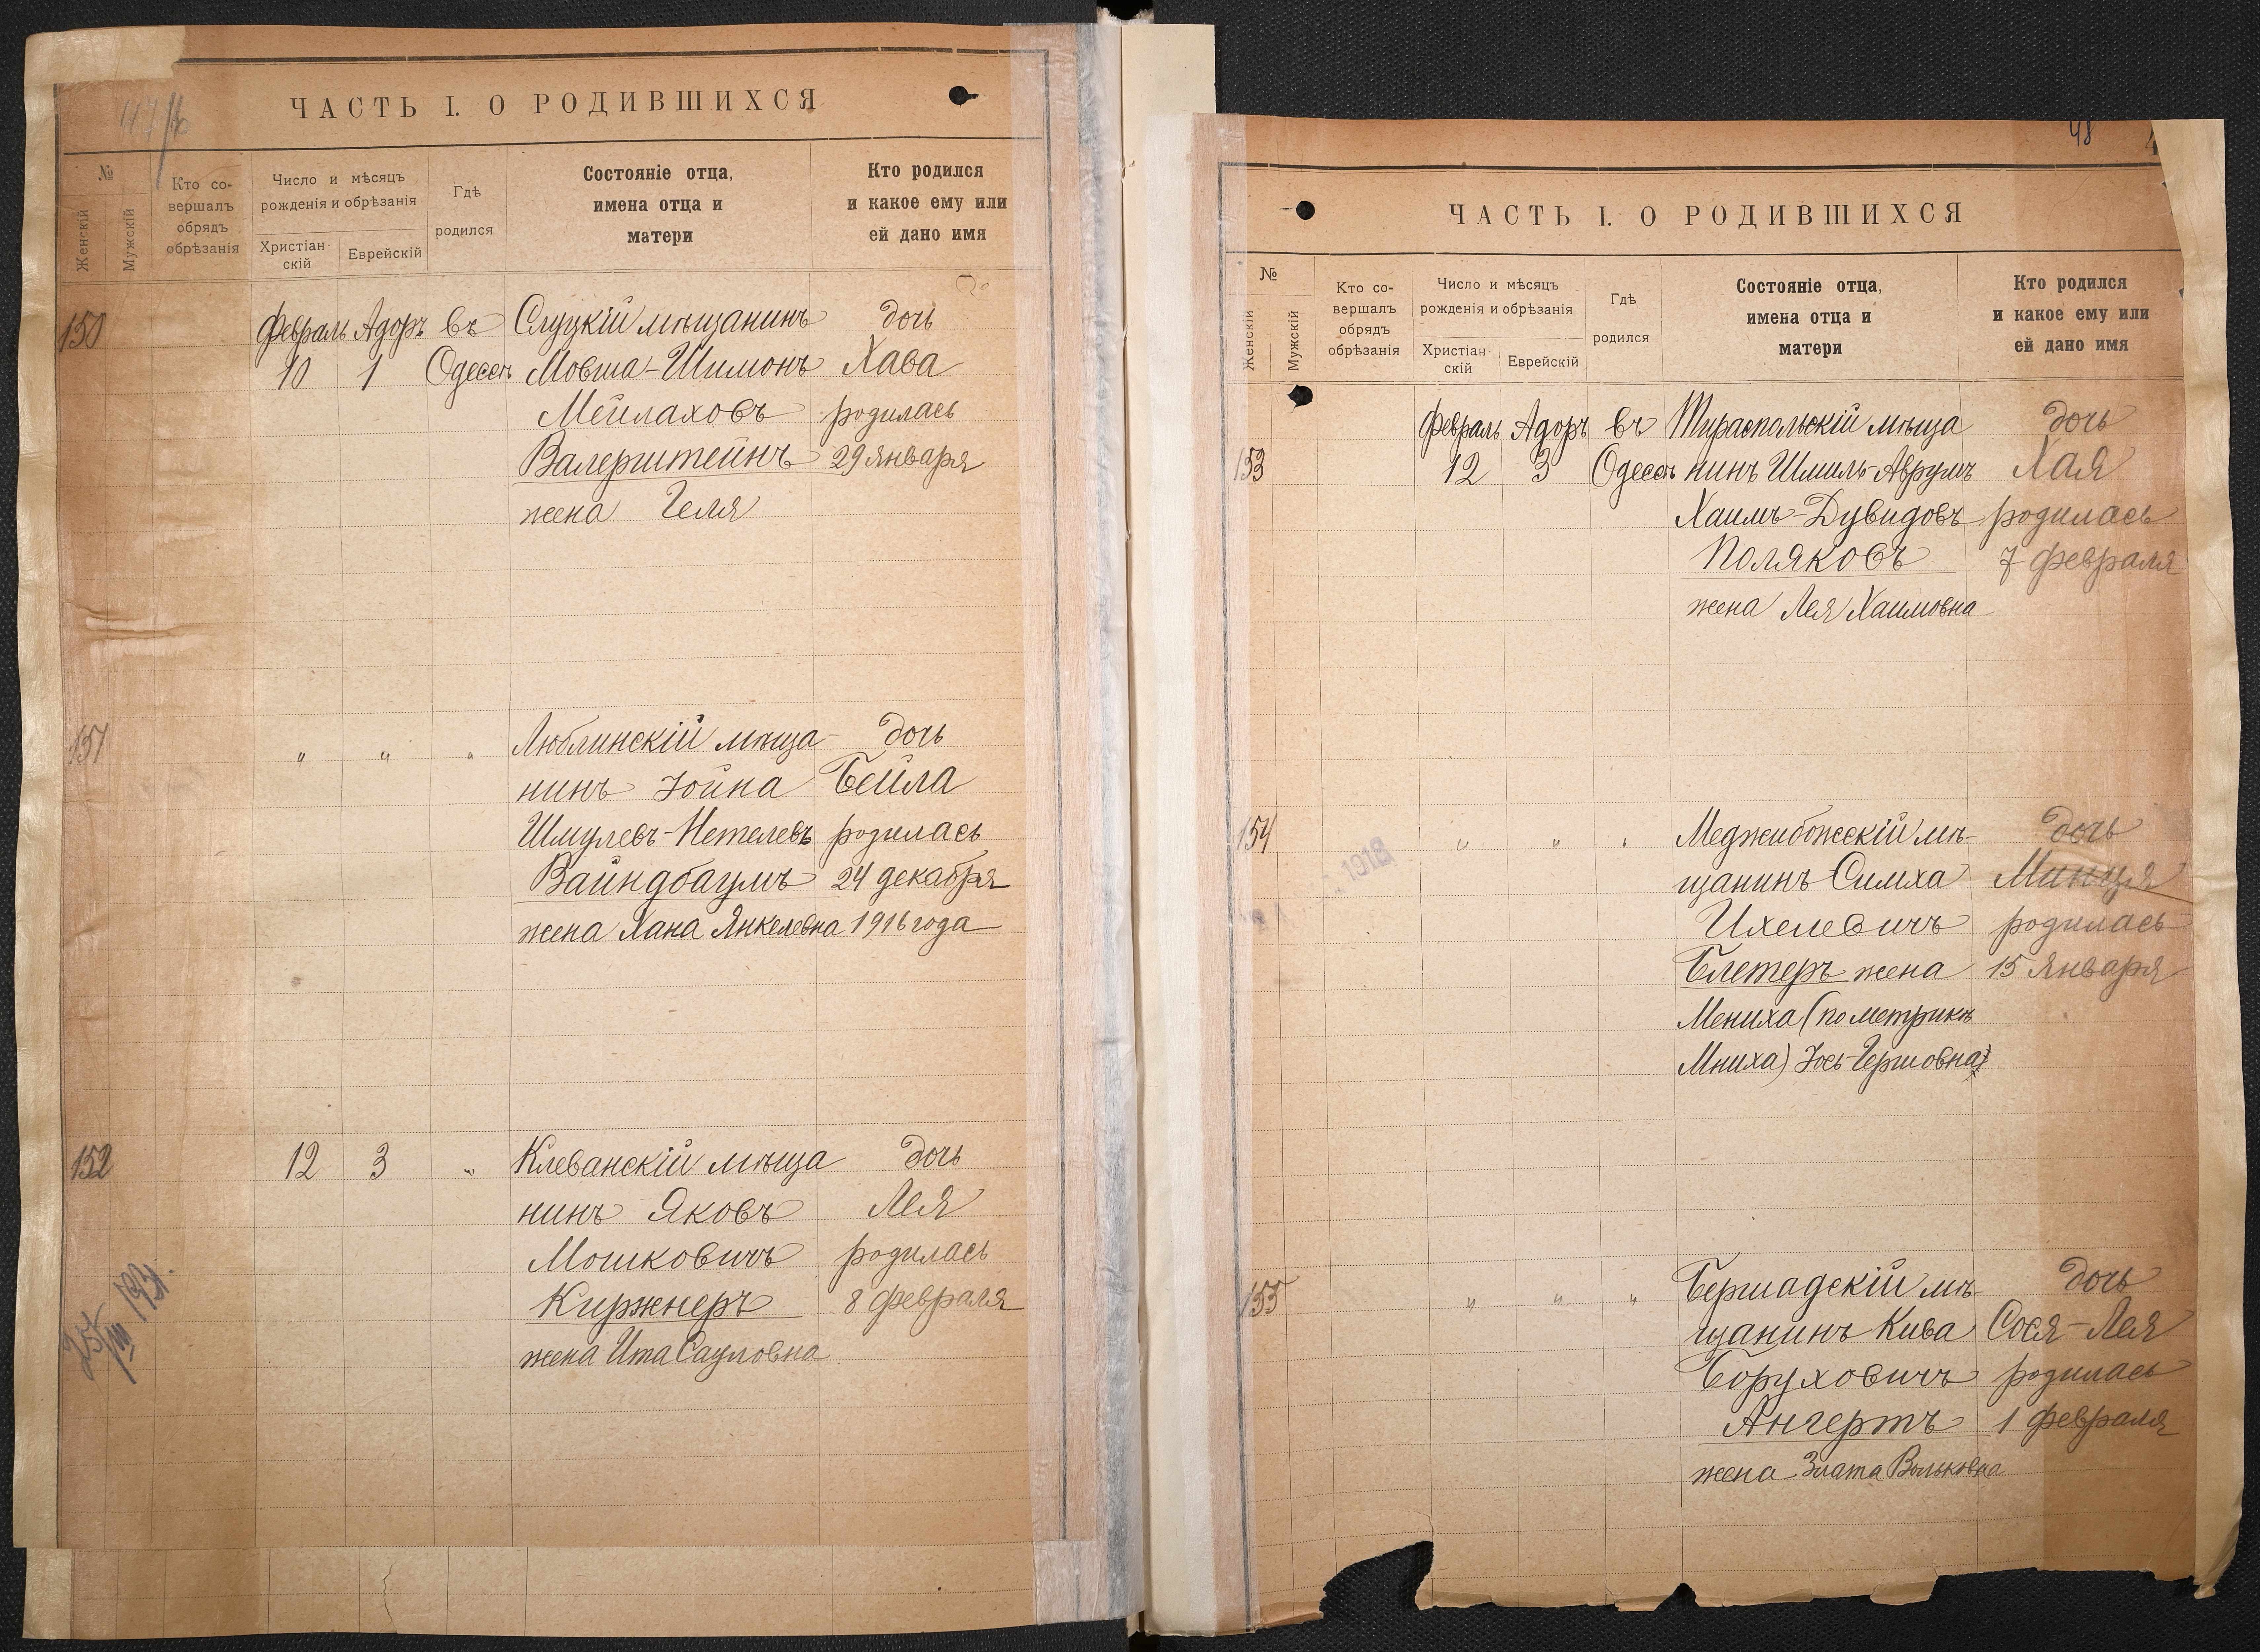 ЧАСТЬ I. О РОДИВШИХСЯ
№
Женскій
Мужскій
Кто со-
вершалъ
обрядъ
обрѣзанія
Число и мѣсяцъ
рожденія и обрѣзанія
Христіан-
скій
Еврейскій
Гдѣ
родился
Состояніе отца,
имена отца и
матери
Кто родился
и какое ему или
ей дано имя
150 Февраль Адоръ въ Слуцкій мѣщанинъ дочь
10 1 Одессѣ Мовша-Шимонъ Хава
Мейлаховъ родилась
Валерштейнъ 29 января
жена Геля
151 " " " Люблинскій мѣща- дочь
нинъ Іойна Бейла
Шмулевъ-Нетелевъ родилась
Вайндбаумъ 24 декабря
жена Хана Янкелевна 1916 года
152 12 3 " Клеванскій мѣща дочь
нинъ Яковъ Лея
Мошковичъ родилась
Киржнеръ 8 февраля
жена Ита Сауловна
48
ЧАСТЬ I. О РОДИВШИХСЯ
№
Женскій
Мужскій
Кто со-
вершалъ
обрядъ
обрѣзанія
Число и мѣсяцъ
рожденія и обрѣзанія
Христіан-
скій
Еврейскій
Гдѣ
родился
Состояніе отца,
имена отца и
матери
Кто родился
и какое ему или
ей дано имя
Февраль Адоръ въ Тираспольскій мѣща дочь
153 12 3 Одессѣ нинъ Шмиль-Аврумъ Хая
Хаимъ-Дувидовъ родилась
Поляковъ 7 февраля
жена Лея Хаимовна
154 " " " Меджибожскій мѣ- дочь
щанинъ Симха Минця
Ихелевичъ родилась
Блетеръ жена 15 января
Мениха (по метрикѣ
Мниха) Іось-Гершовна
155 " " " Бершадскій мѣ- дочь
щанинъ Кива Сося-Лея
Боруховичъ родилась
Ангертъ 1 февраля
жена Злата Вольковна